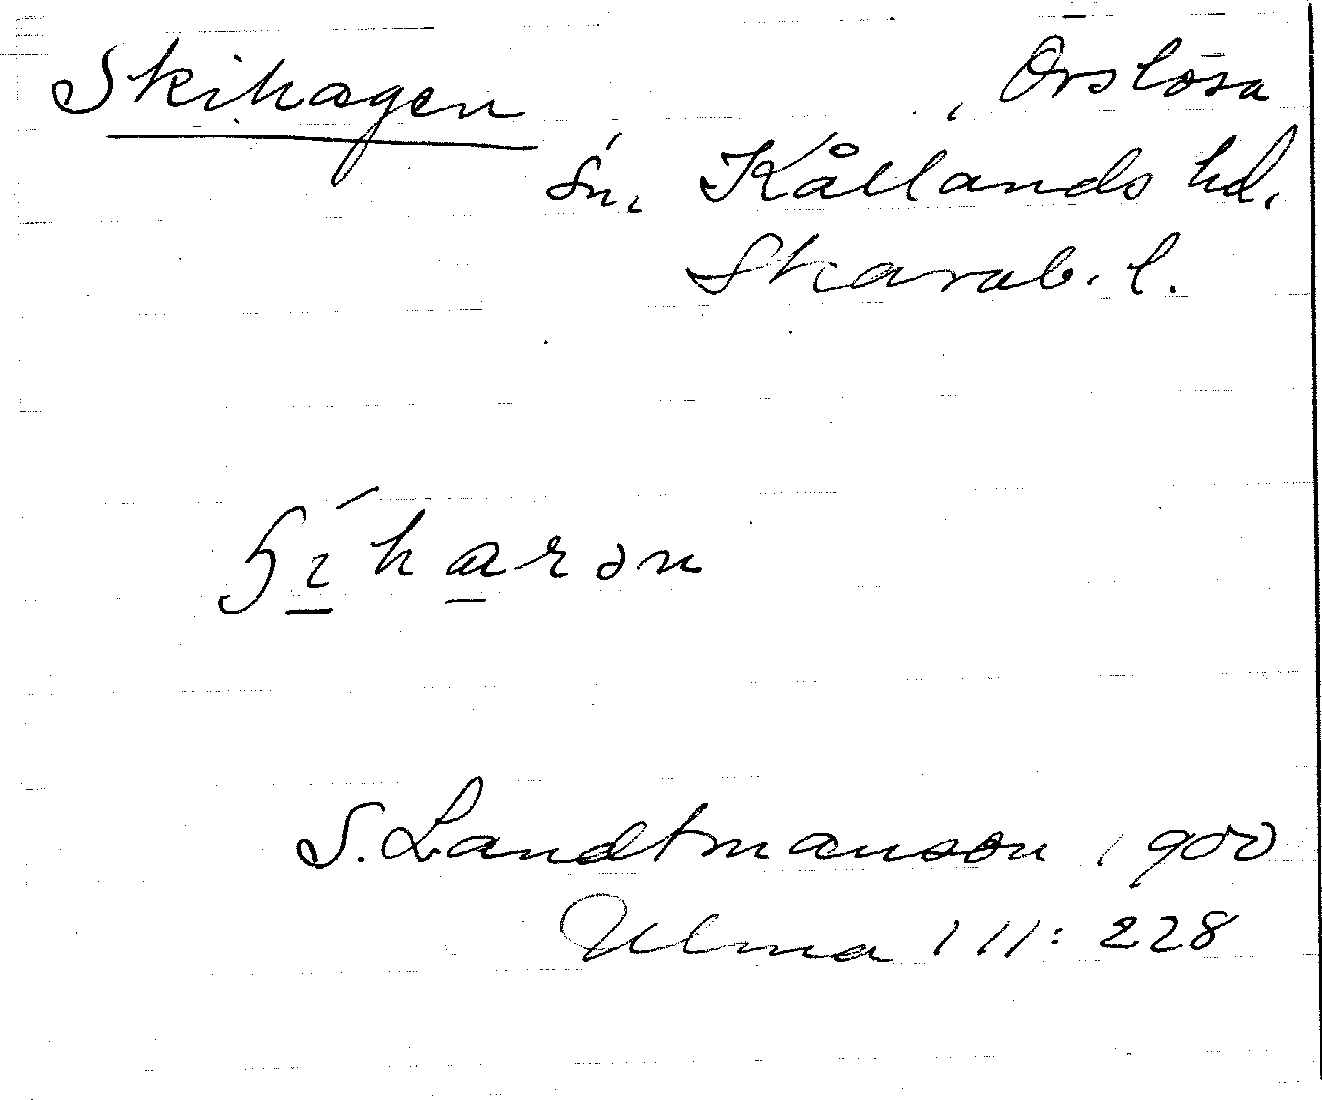 Skihagen
Örslösa
sn. Kållands hd.
Skarab. l.
S. Landtmanson 1900
Ulma 111: 228